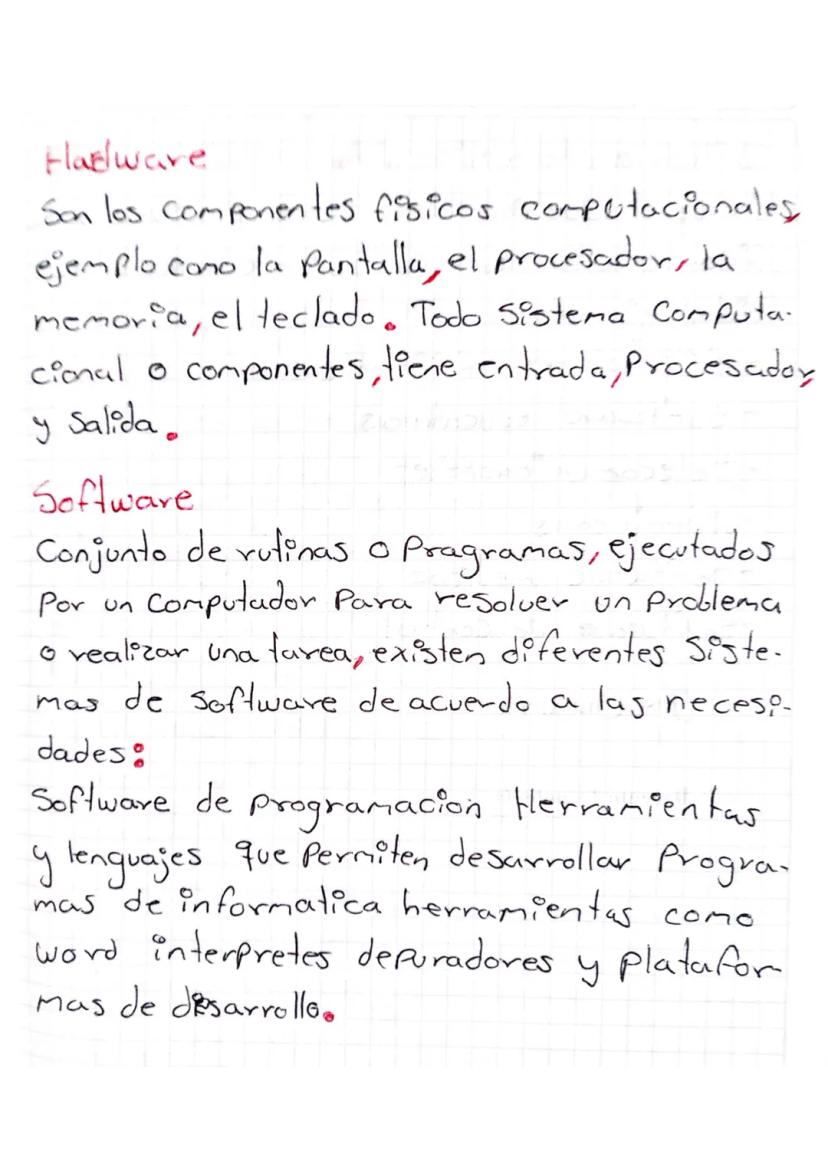 Hardware
Son los componentes físicos computacionales,
ejemplo como la Pantalla, el procesador, la
memoria, el teclado. Todo Sistema Computa-
cional o componentes, tiene entrada, Procesador,
y Salida.
Software
Conjunto de rutinas o Programas, ejecutados
Por un Computador Para resolver un Problema
o realizar una tarea, existen diferentes Siste-
mas de Software de acuerdo a las necesi-
dades:
Software de programacion Herramientas
y lenguajes que Permiten desarrollar Progra-
mas de informatica herramientas como
word interpretes depuradores y platafor-
mas de desarrollo.